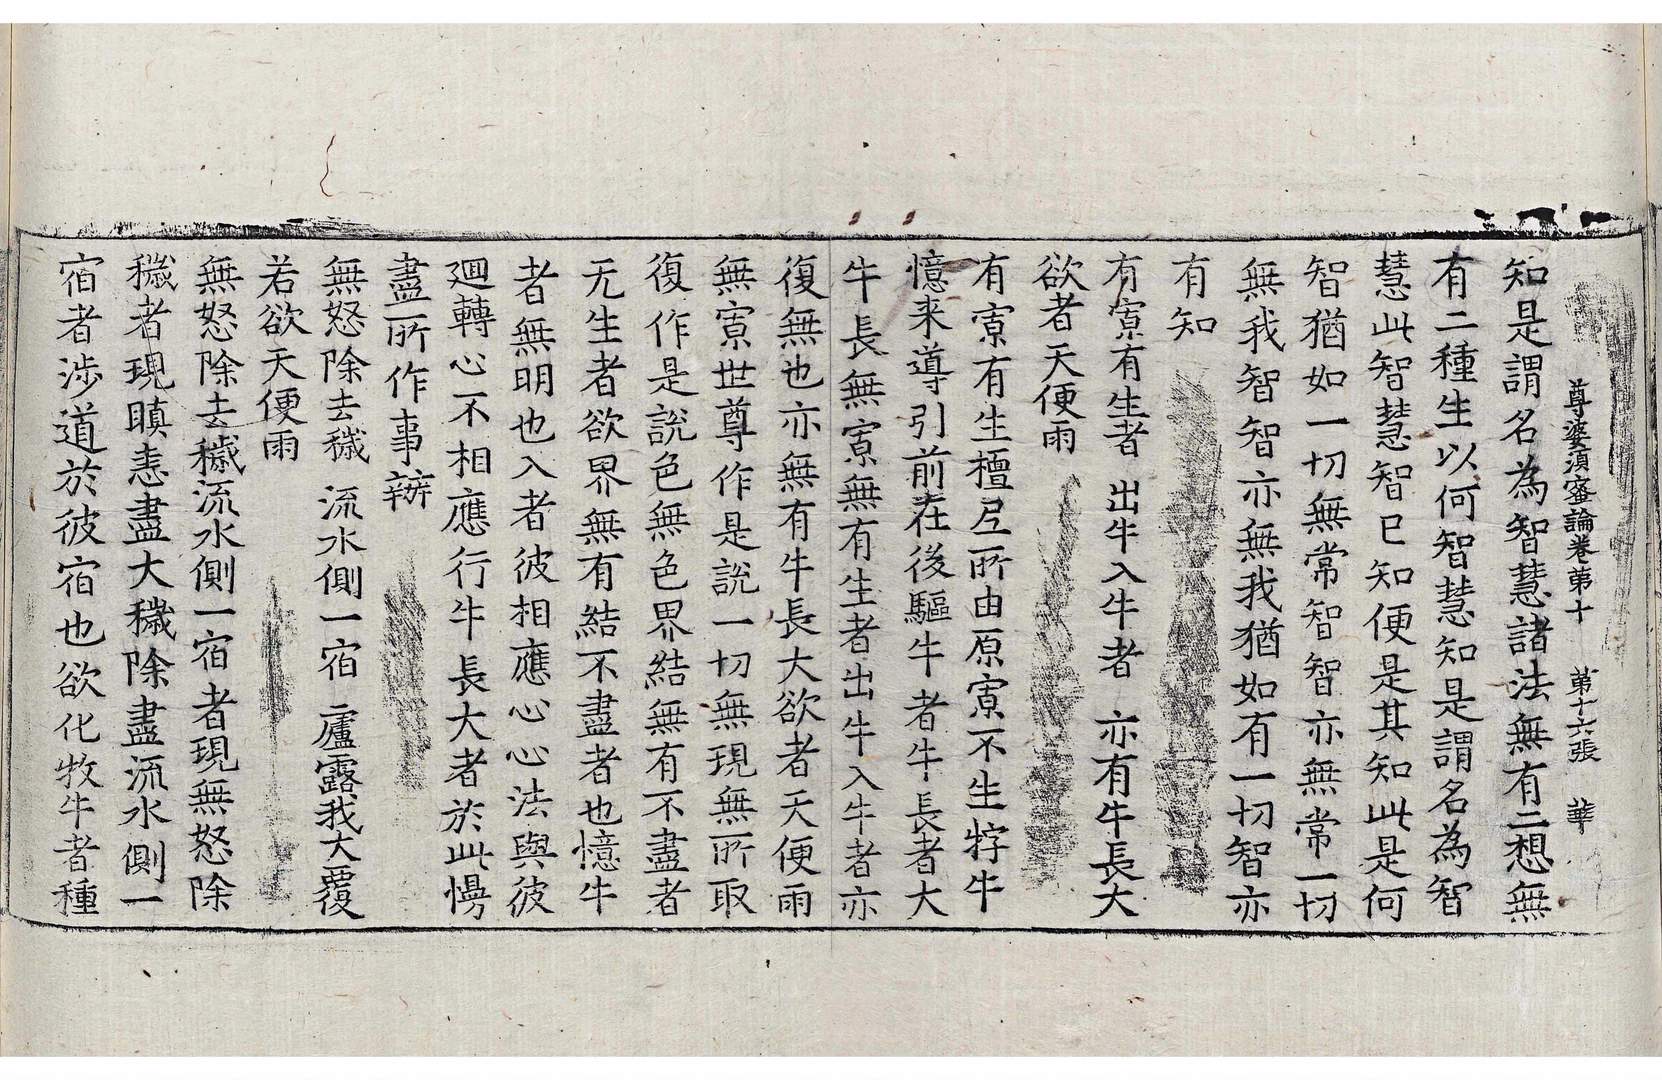 尊婆須蜜論卷第十 第十六張 華
知是謂名為智慧諸法無有二想無
有二種生以何智慧知是謂名為智
慧此智慧智已知便是其知此是何
智猶如一切無常智智亦無常一切
無我智智亦無我猶如有一切智亦
有知
有寡有生者 出牛入牛者 亦有牛長大
欲者天便雨
有寡有生檀尼所由原寡不生牸牛
憶来導引前在後驅牛者牛長者大
牛長無寡無有生者出牛入牛者亦
復無也亦無有牛長大欲者天便雨
無寡世尊作是說一切無現無所取
復作是說色無色界結無有不盡者
无生者欲界無有結不盡者也憶牛
者無明也入者彼相應心心法與彼
迴轉心不相應行牛長大者於此憍
盡所作事辦
無怒除去穢 流水側一宿 廬露我大覆
若欲天便雨
無怒除去穢流水側一宿者現無怒除
穢者現瞋恚盡大穢除盡流水側一
宿者涉道於彼宿也欲化牧牛者種